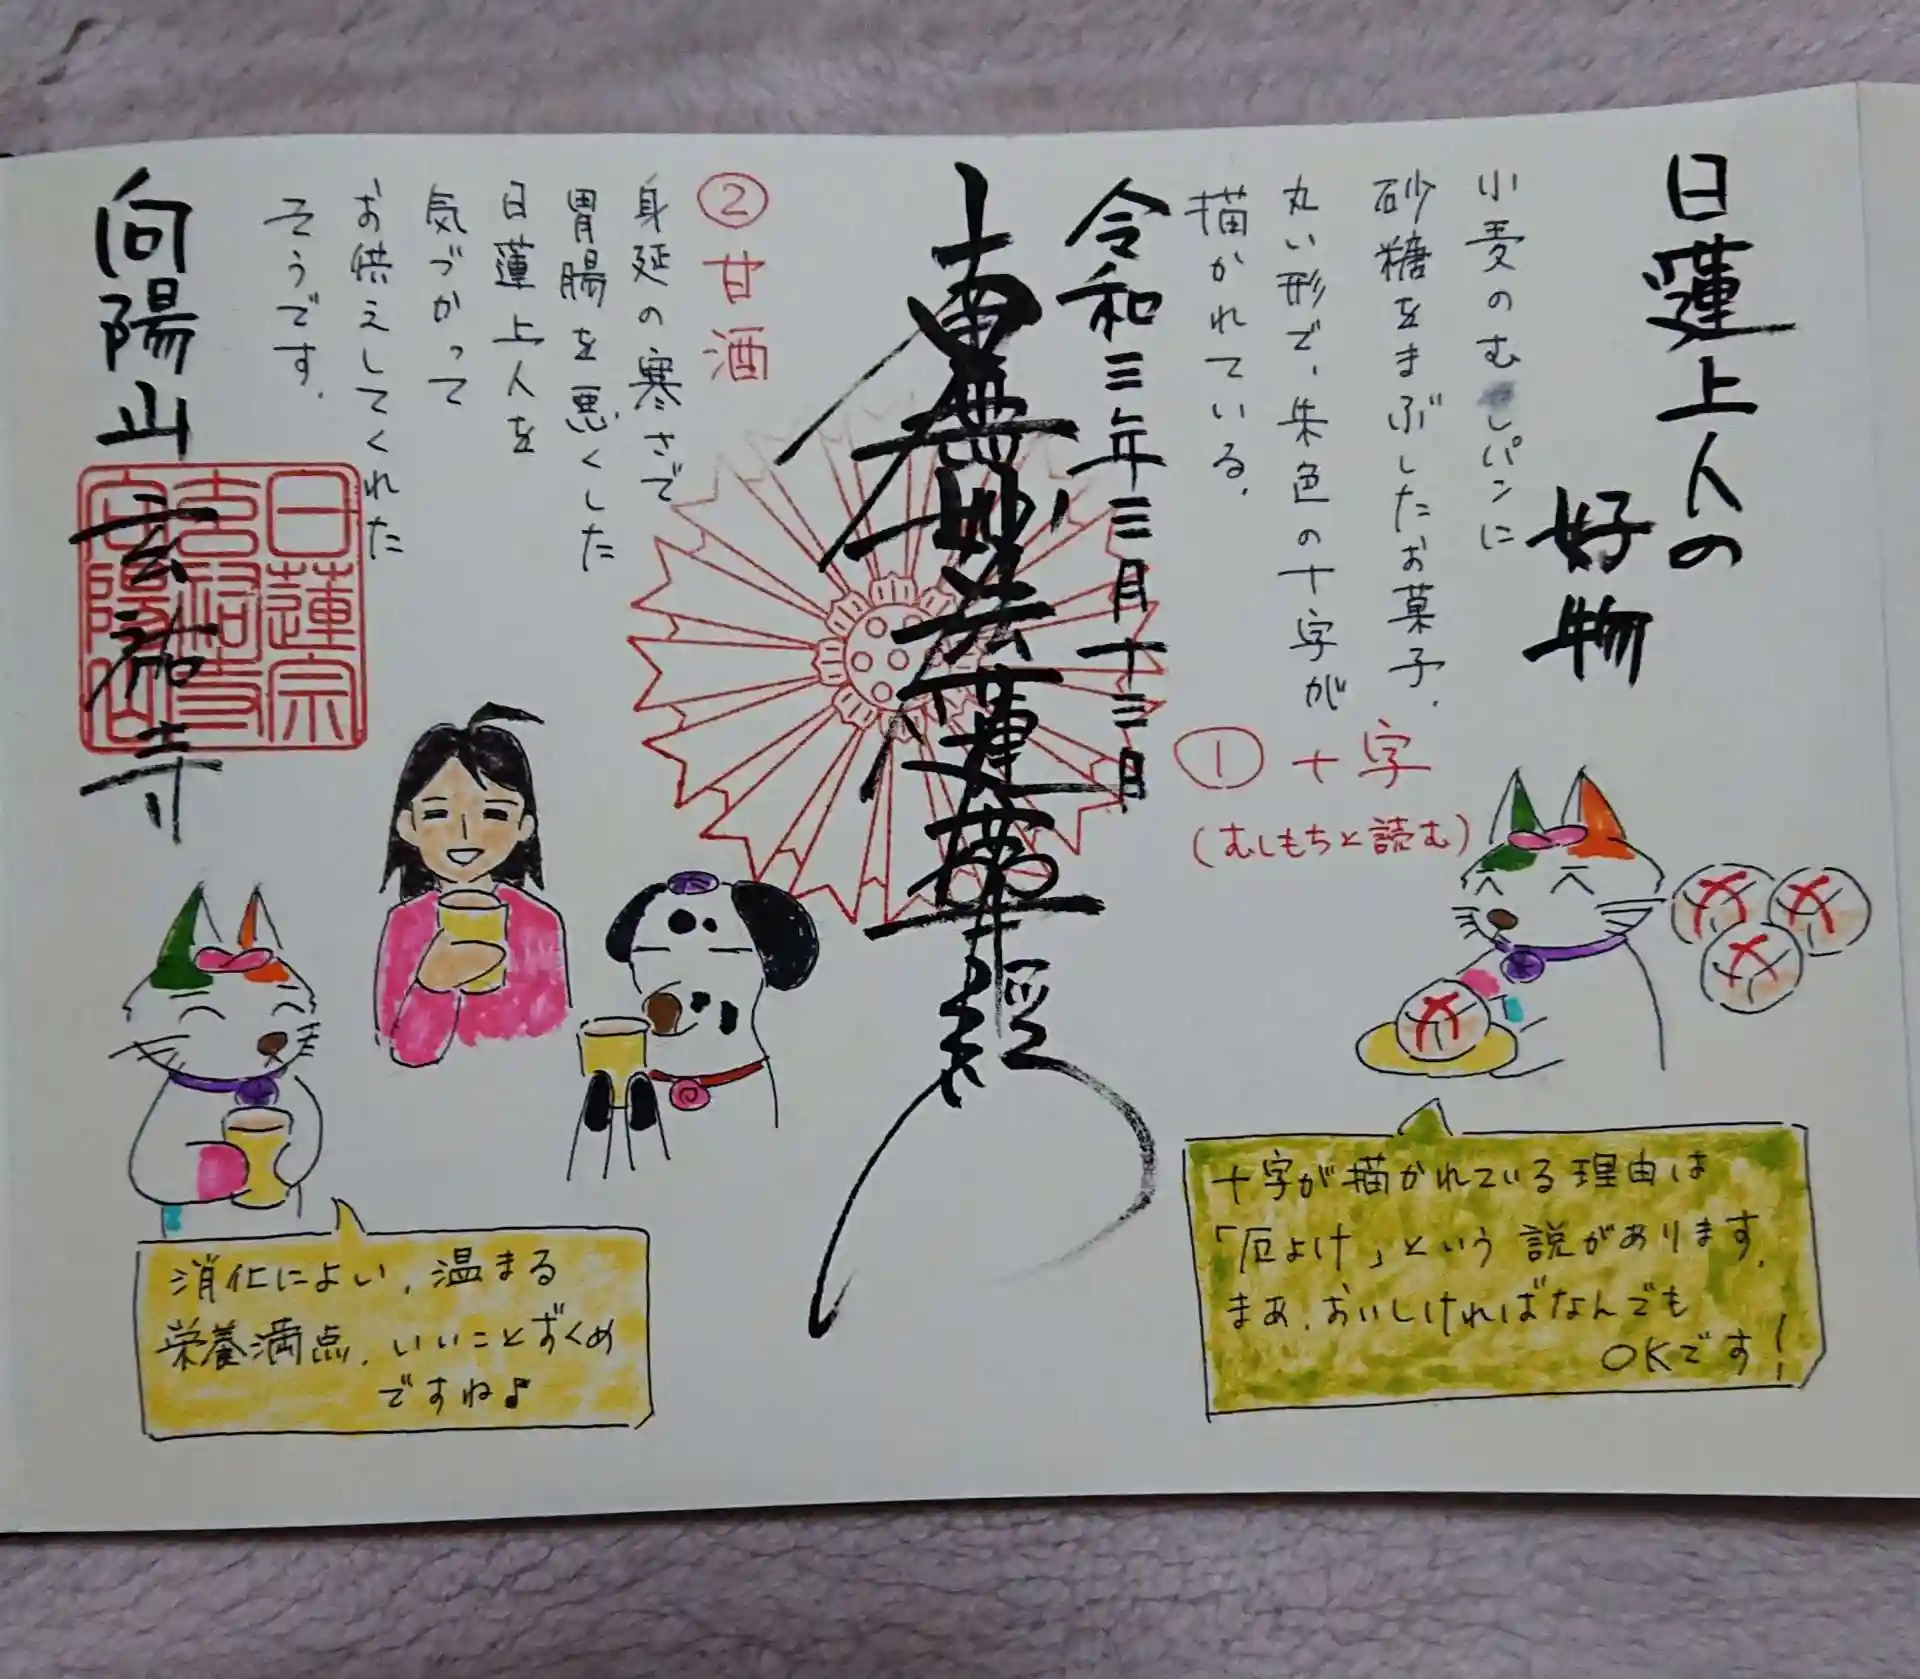 日蓮上人の
好物
①十字
(むしもちと読む)
小麦のむしパンに
砂糖をまぶしたお菓子.
丸い形で、朱色の十字が
描かれている.
十字が描かれている理由は
「厄よけ」という説があります.
まあ、おいしければなんでも
OKです!
令和三年三月十三日
南無妙法蓮華経
②甘酒
身延の寒さで
胃腸を悪くした
日蓮上人を
気づかって
お供えしてくれた
そうです.
消化によい、温まる
栄養満点、いいことずくめ
ですね♪
向陽山
寺
日蓮宗